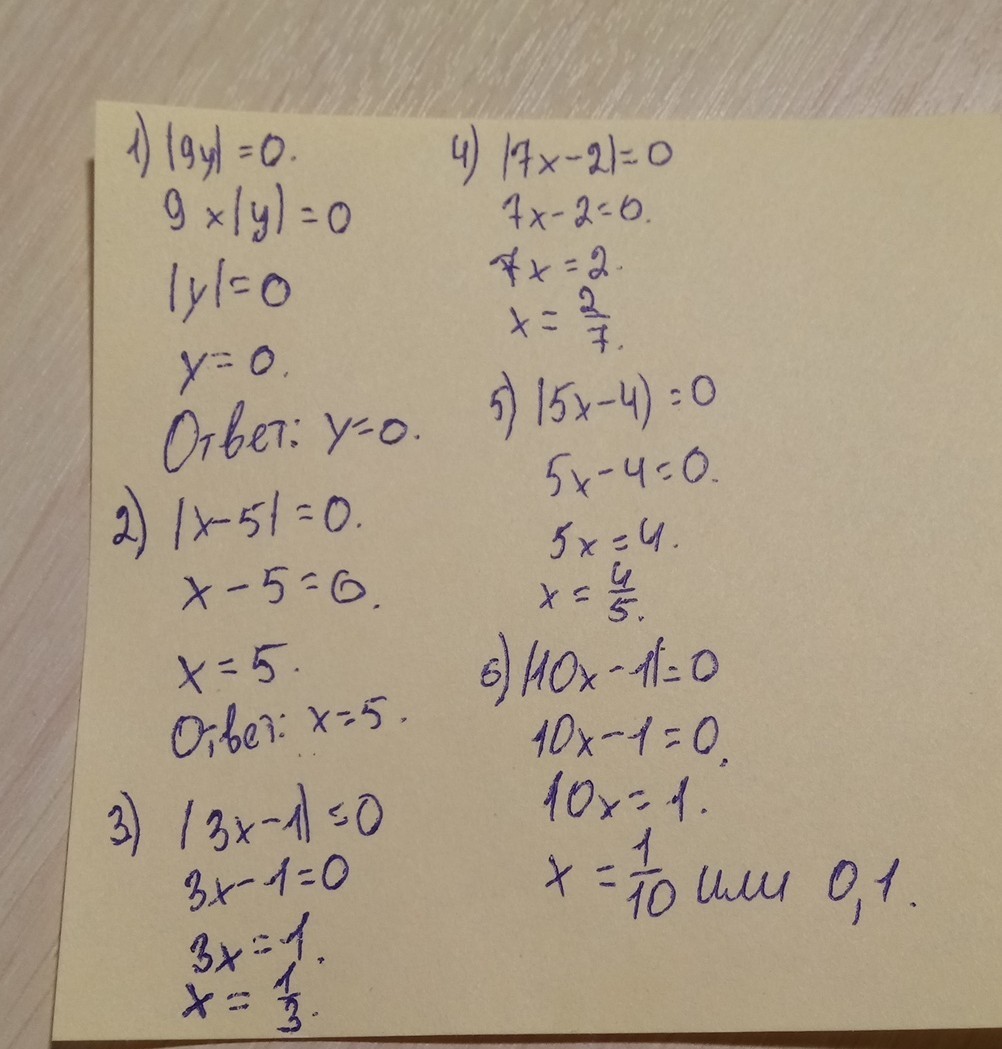 1) |9y| = 0.
9 x |y| = 0
|y| = 0
y = 0.
Ответ: y = 0.
2) |x - 5| = 0.
x - 5 = 0.
x = 5.
Ответ: x = 5.
3) |3x - 1| = 0
3x - 1 = 0
3x = 1.
x = 1/3.
4) |7x - 2| = 0
7x - 2 = 0.
7x = 2.
x = 2/7.
5) |5x - 4) = 0
5x - 4 = 0.
5x = 4.
x = 4/5.
6) |10x - 1| = 0
10x - 1 = 0.
10x = 1.
x = 1/10 или 0,1.